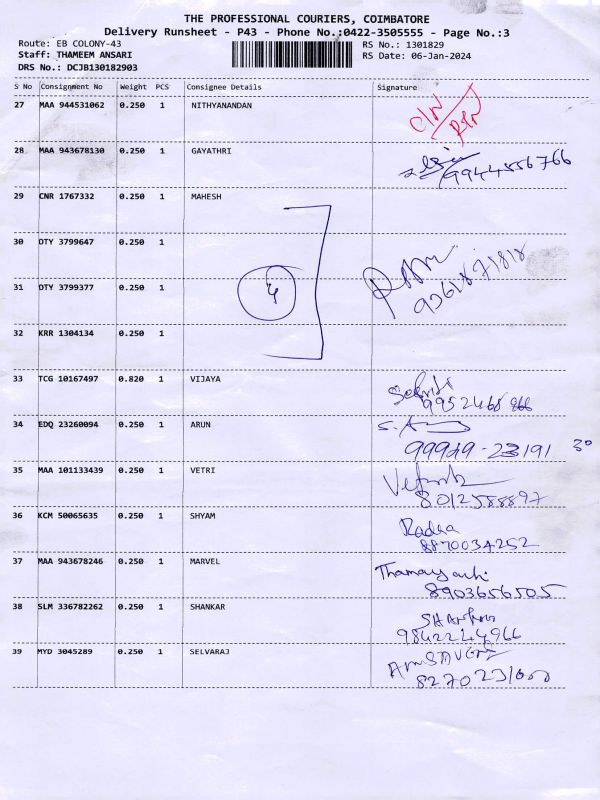 THE PROFESSIONAL COURIERS, COIMBATORE
Delivery Runsheet - P43 - Phone No.:0422-3505555 - Page No.:3
Route: EB COLONY-43
Staff: THAMEEM ANSARI
DRS No.: DCJB130182903
RS No.: 1301829
RS Date: 06-Jan-2024
S No Consignment No Weight PCS Consignee Details Signature
27 MAA 944531062 0.250 1 NITHYANANDAN
28 MAA 943678130 0.250 1 GAYATHRI
9944556766
29 CNR 1767332 0.250 1 MAHESH
30 DTY 3799647 0.250 1
31 DTY 3799377 0.250 1 4
32 KRR 1304134 0.250 1
33 TCG 10167497 0.820 1 VIJAYA
34 EDQ 23260094 0.250 1 ARUN
30
35 MAA 101133439 0.250 1 VETRI
8012588897
36 KCM 50065635 0.250 1 SHYAM
Radha
8870034252
37 MAA 943678246 0.250 1 MARVEL
8903656505
38 SLM 336782262 0.250 1 SHANKAR
9842244966
39 MYD 3045289 0.250 1 SELVARAJ